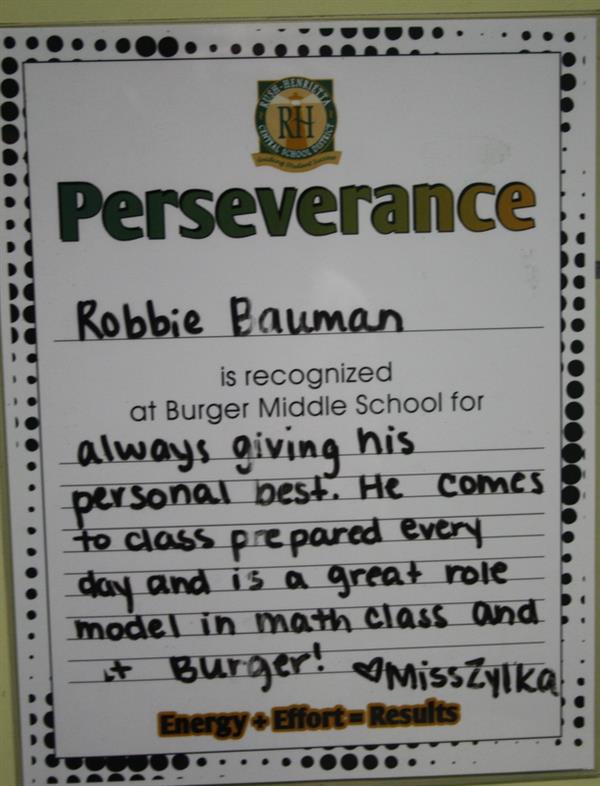 RUSH-HENRIETTA
RH
CENTRAL SCHOOL DISTRICT
Leading Student Success
Perseverance
Robbie Bauman
is recognized
at Burger Middle School for
always giving his
personal best. He comes
to class prepared every
day and is a great role
model in math class and
at Burger! ♡Miss Zylka
Energy + Effort = Results